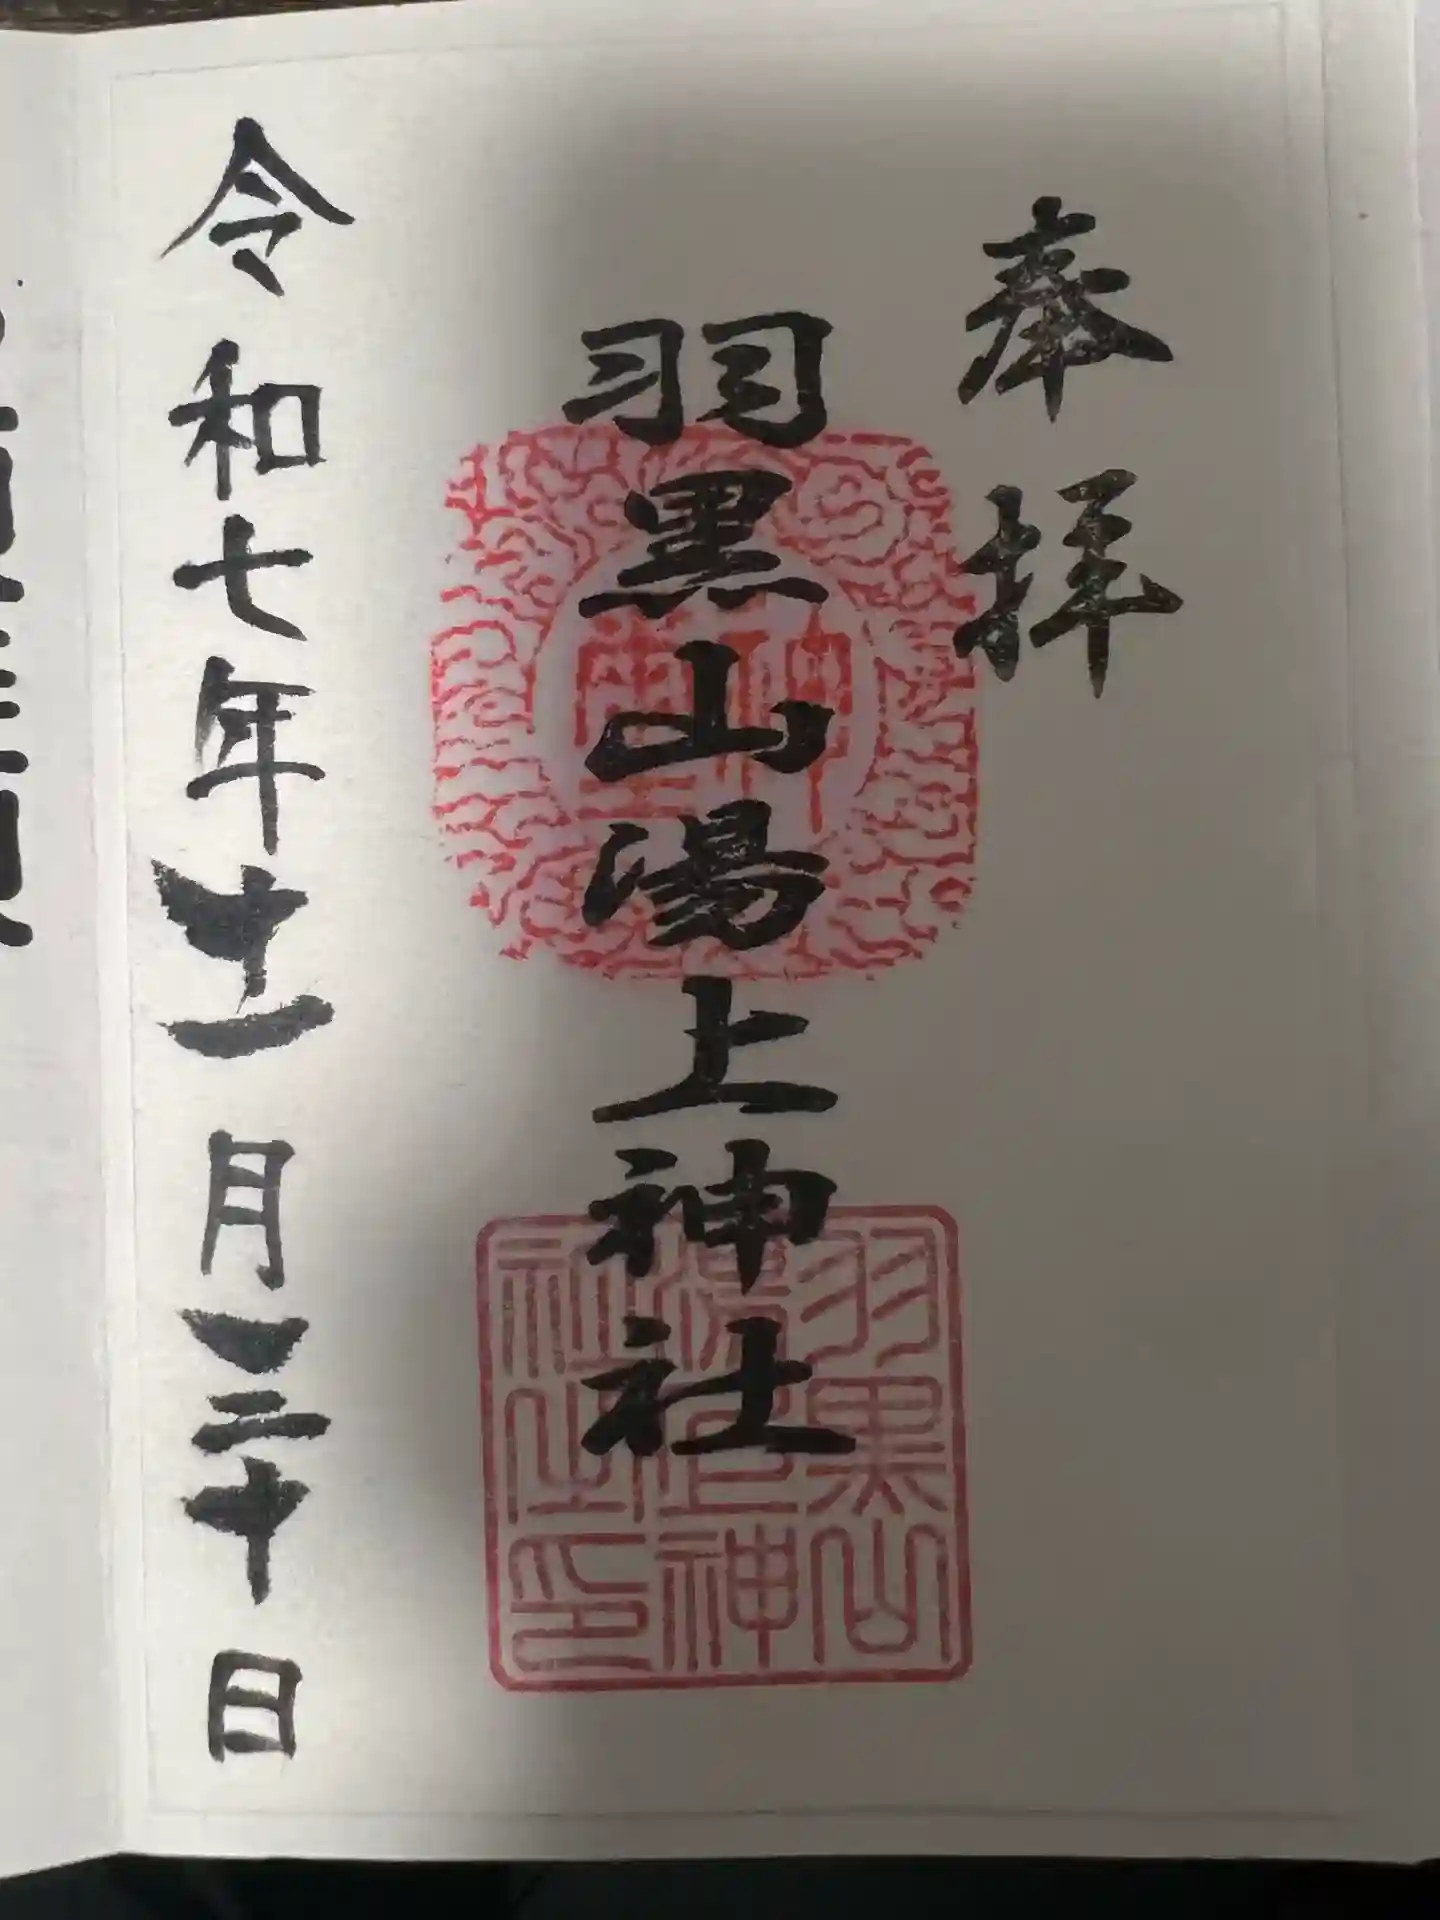 奉拝
羽黒山湯上神社
令和七年十一月三十日
羽黒山
湯上神
社之印